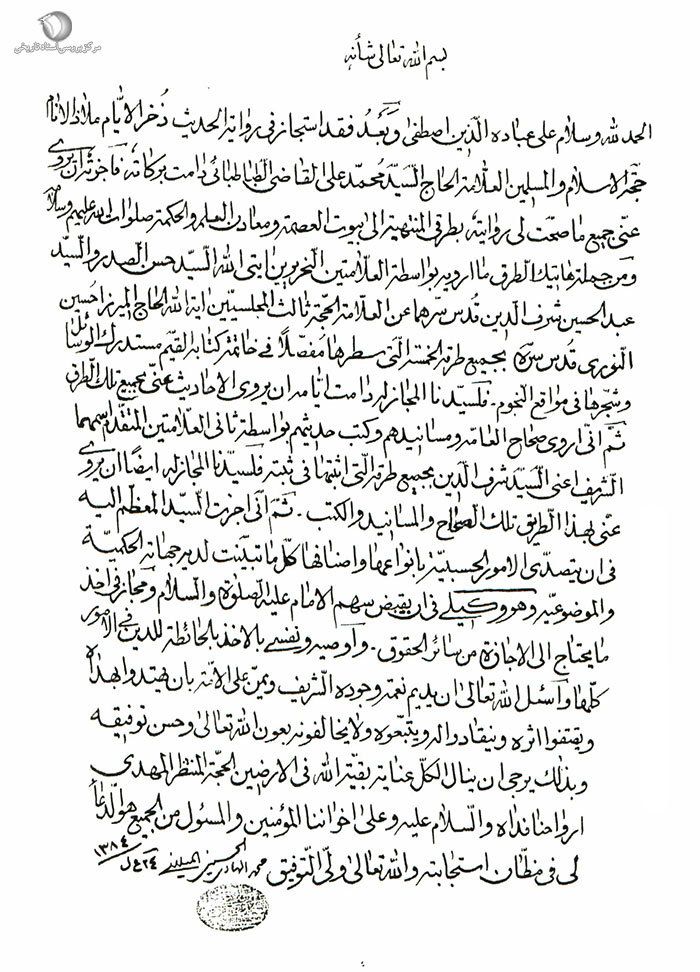 مرکز بررسی اسناد تاریخی
بسم الله تعالی شأنه
الحمد لله وسلام علی عباده الذین اصطفی وبعد فقد استجاز فی روایة الحدیث ذخر الایام ملاذ الانام
حجة الاسلام والمسلمین العلامة الحاج السید محمد علی القاضی الطباطبائی دامت برکاته فاجزته ان یروی
عنی جمیع ما صحت لی روایته بطرقی المنتهیة الی بیوت العصمة ومعادن العلم والحکمة صلوات الله علیهم وسلامه
ومن جملة هاتیک الطرق ما ارویه بواسطة العلامتین النحریرین ایتی الله السید حسن الصدر والسید
عبد الحسین شرف الدین قدس سرهما عن العلامة الحجة ثالث المجلسیین ایة الله الحاج المیرزا حسین
النوری قدس سره بجمیع طرقه الخمسة التی سطرها مفصلاً فی خاتمة کتابه القیم مستدرک الوسائل
وشجرها فی مواقع النجوم - فلسیدنا المجاز له دامت ایامه ان یروی الاحادیث عنی بجمیع تلک الطرق
ثم انی اروی صحاح العامه ومسانیدهم وکتب حدیثهم بواسطة ثانی العلامتین المتقدم اسمهما
الشریف اعنی السید شرف الدین بجمیع طرقه التی اثبتها فی ثبته فلسیدنا المجاز له ایضاً ان یروی
عنی بهذا الطریق تلک الصحاح والمسانید والکتب - ثم انی اجزت السید المعظم الیه
فی ان یتصدی الامور الحسبیة بانواعها واصنافها کل ما تبینت لدیه جهاته الحکمیة
والموضوعیه وهو وکیلی فی ان یقبض سهم الامام علیه الصلوة والسلام ومجاز فی اخذ
ما یحتاج الی الاجازة من سائر الحقوق - واوصیه ونفسی بالاخذ بالحائطة للدین فی الامور
کلها واسئل الله تعالی ان یدیم نعمة وجوده الشریف ویمن علی الامة بان یهتدوا بهداه
ویقتفوا اثره وینقادوا له ویتبعوه ولا یخالفونه بعون الله تعالی وحسن توفیقه
وبذلک یرجی ان ینال الکل عنایة بقیة الله فی الارضین الحجة المنتظر المهدی
ارواحنا فداه والسلام علیه وعلی اخواننا المؤمنین والمسئول من الجمیع هو الدعاء
لی فی مظان استجابته والله تعالی ولی التوفیق محمد الهادی الحسینی المیلانی ٢٤ ع ل ١٣٨٤